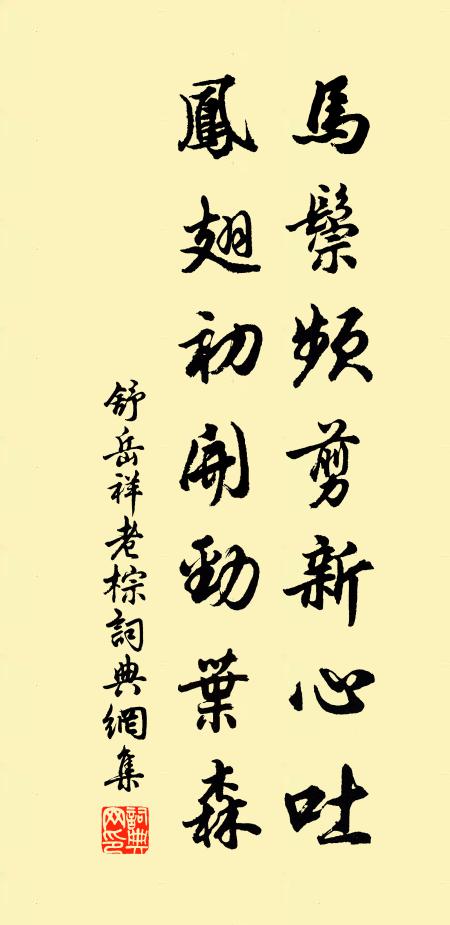 馬鬃頻剪新心吐
鳳翅初開勁葉森
舒岳祥老棕詞典網集
詞典网印